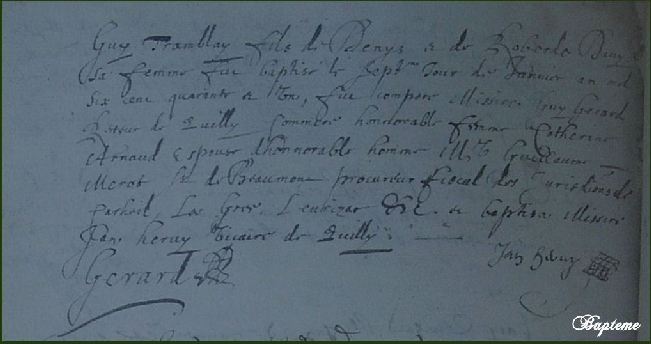 Guy Tramblay fils de Denys & de Roberde
sa femme fut baptisé le septme Jour de Janvier an mil
six cent quarante & Un, fut compere Missire Guy Gerard
Recteur de Quilly Commere honnorable femme Catherine
Arnaud espouse dhonnorable homme Guillaume
Merot Sr de Beaumont procureur fiscal des Jurisdictions de
&c. & baptisa Missire
Jan hervy vicaire de Quilly
Jan hervy
Gerard
Bapteme